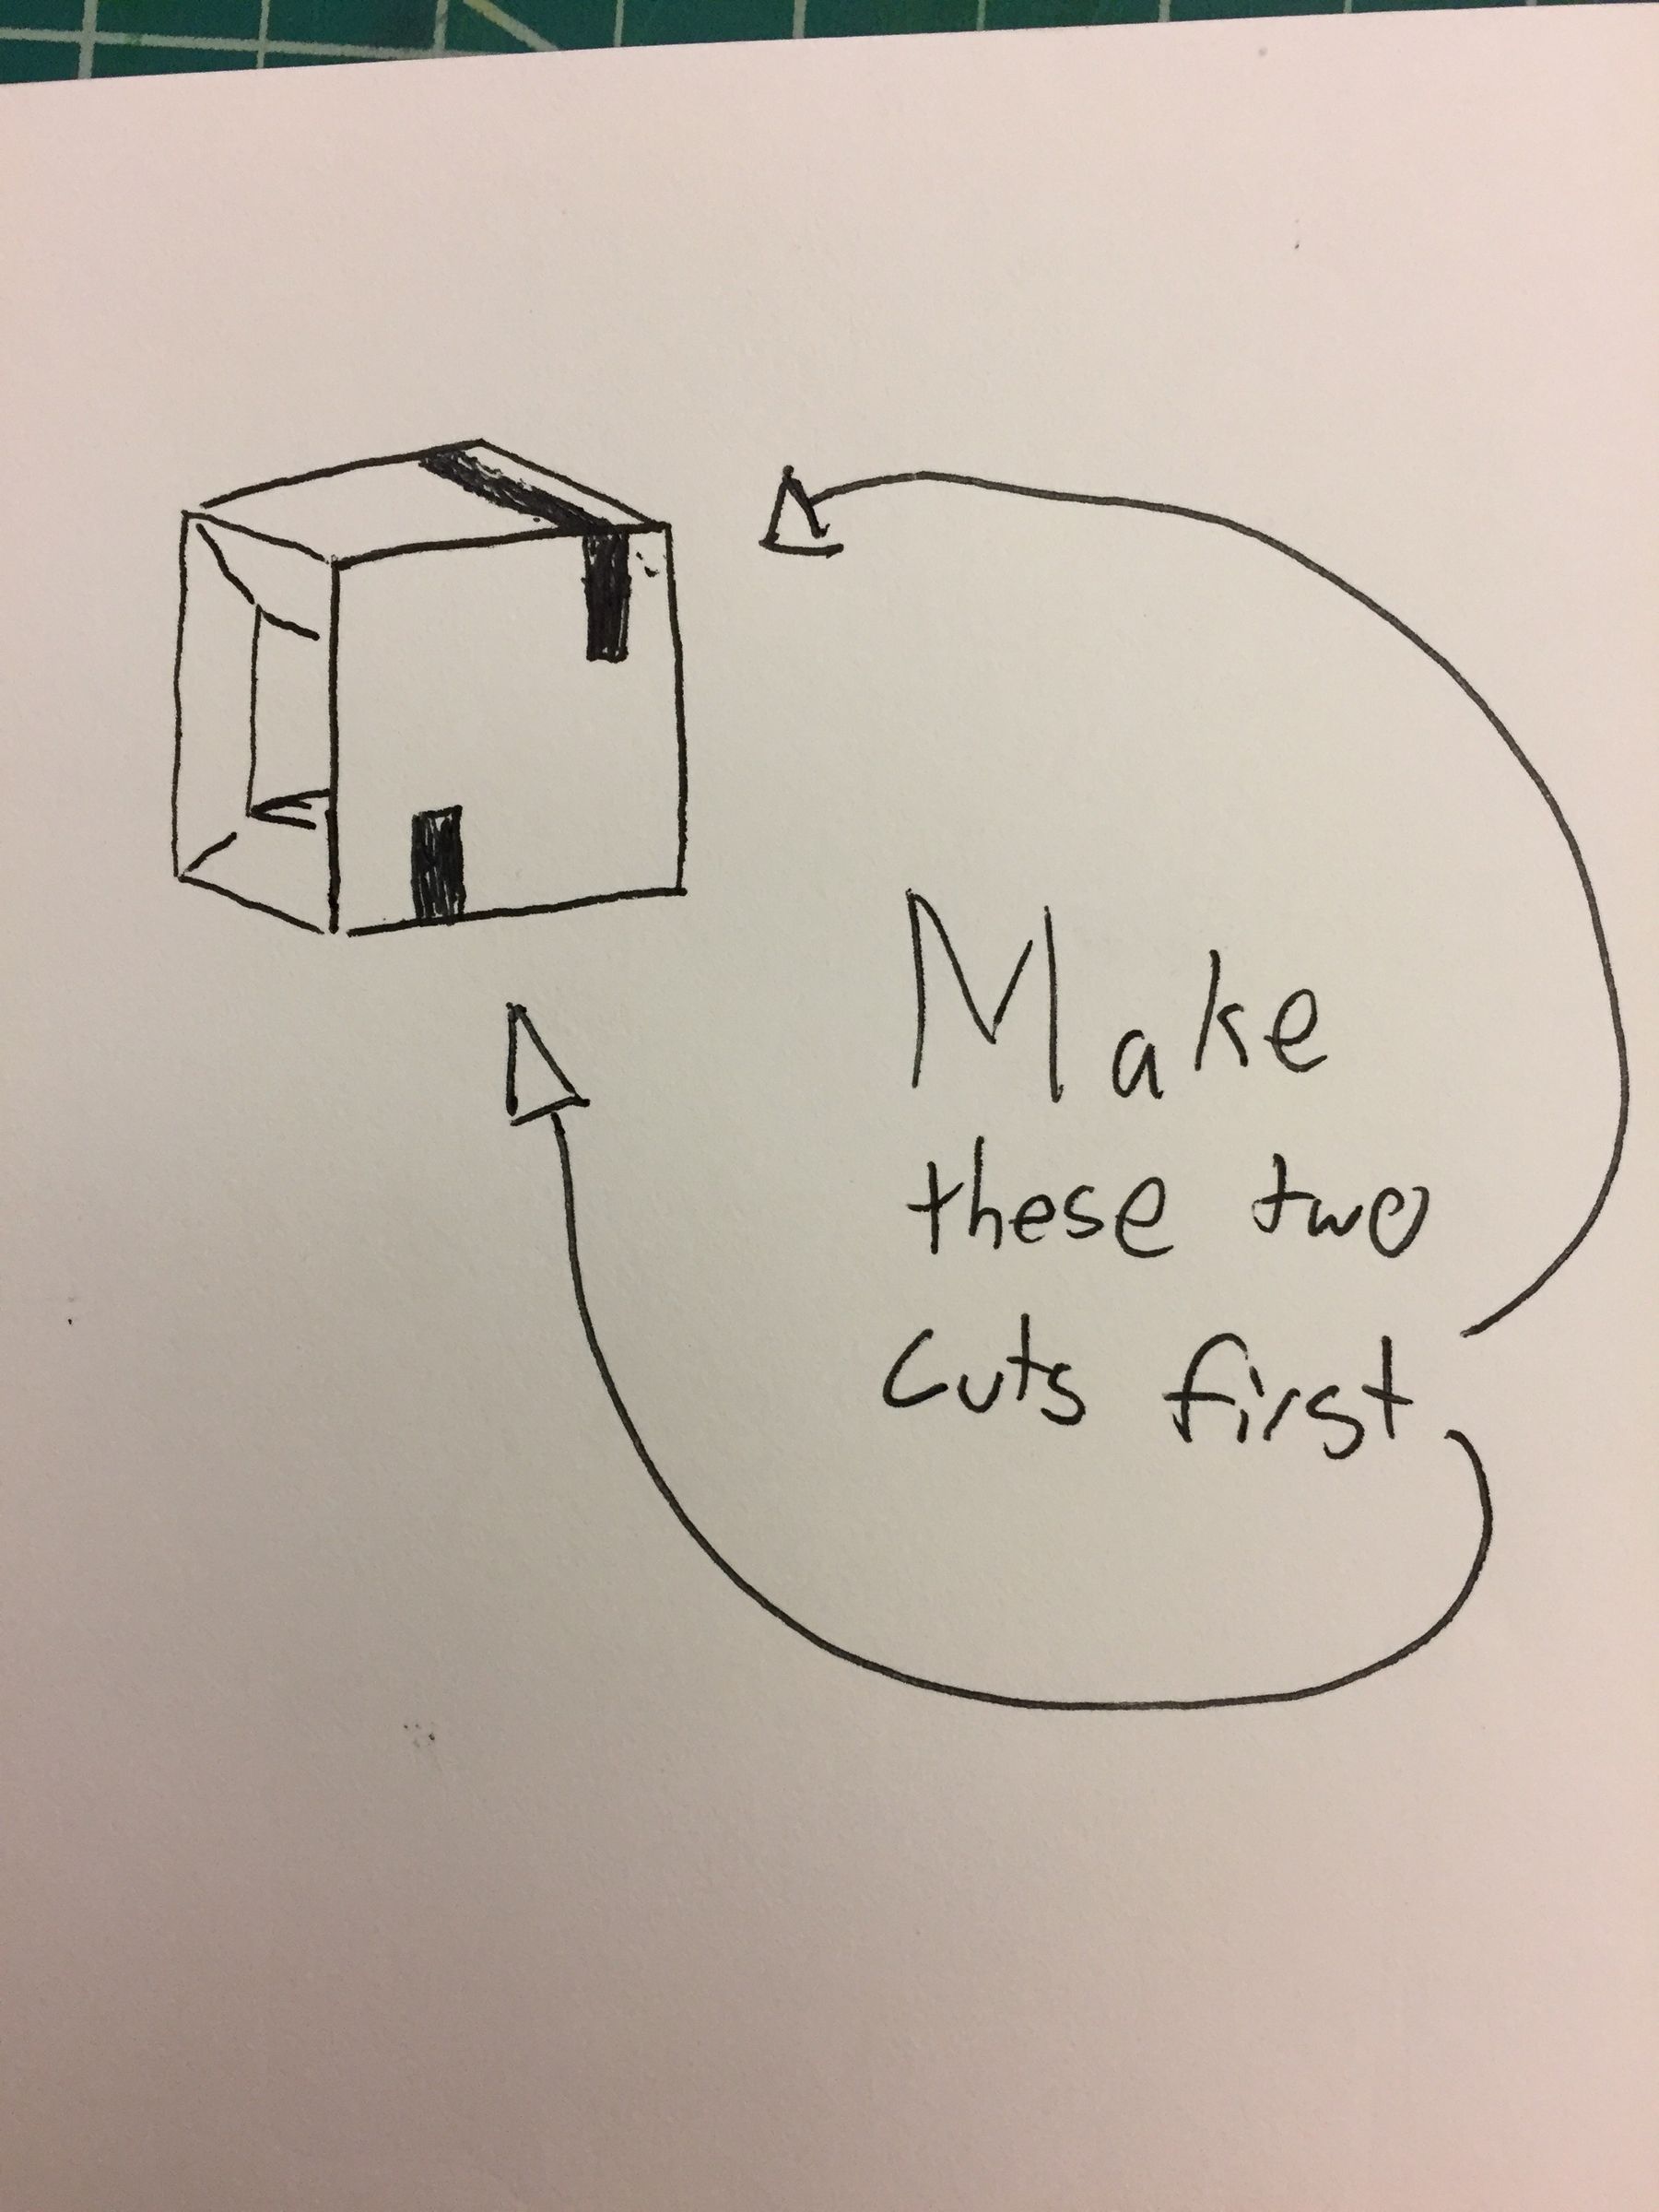 Make
these two
cuts first